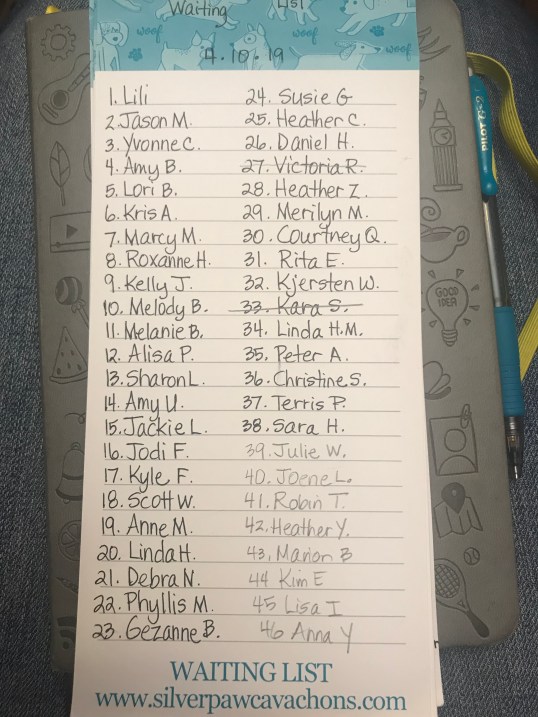 Waiting List
woof
woof
woof
4.10.19
1. Lili
2. Jason M.
3. Yvonne C.
4. Amy B.
5. Lori B.
6. Kris A.
7. Marcy M.
8. Roxanne H.
9. Kelly J.
10. Melody B.
11. Melanie B.
12. Alisa P.
13. Sharon L.
14. Amy U.
15. Jackie L.
16. Jodi F.
17. Kyle F.
18. Scott W.
19. Anne M.
20. Linda H.
21. Debra N.
22. Phyllis M.
23. Gezanne B.
24. Susie G
25. Heather C.
26. Daniel H.
27. Victoria R.
28. Heather Z.
29. Merilyn M.
30. Courtney Q.
31. Rita E.
32. Kjersten W.
33. Kara S.
34. Linda H.M.
35. Peter A.
36. Christine S.
37. Terris P.
38. Sara H.
39. Julie W.
40. Joene L.
41. Robin T.
42. Heather Y.
43. Marion B
44 Kim E
45 Lisa I
46 Anna Y
WAITING LIST
www.silverpawcavachons.com
PILOT
GOOD
IDEA